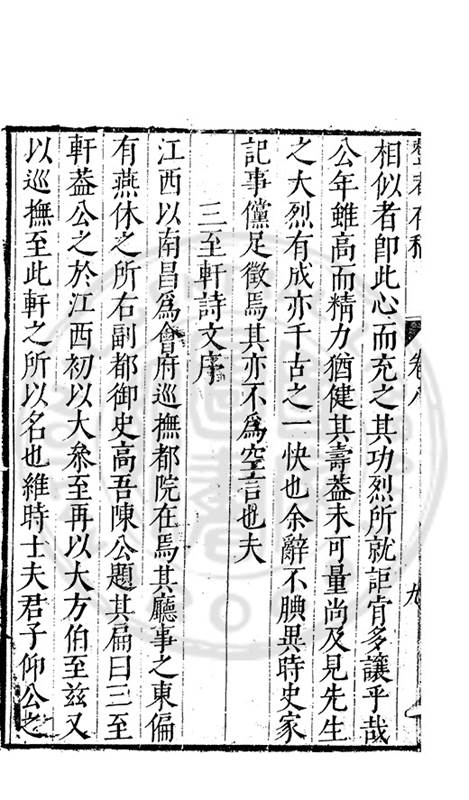 相似者卽此心而充之其功烈所就詎肯多讓乎哉
公年雖高而精力猶健其壽葢未可量尚及見先生
之大烈有成亦千古之一快也余辭不腆異時史家
記事儻足徵焉其亦不爲空言也夫
三至軒詩文序
江西以南昌爲會府巡撫都院在焉其廳事之東偏
有燕休之所右副都御史高吾陳公題其扁曰三至
軒葢公之於江西初以大叅至再以大方伯至茲又
以巡撫至此軒之所以名也維時士夫君子仰公之
卷八
九